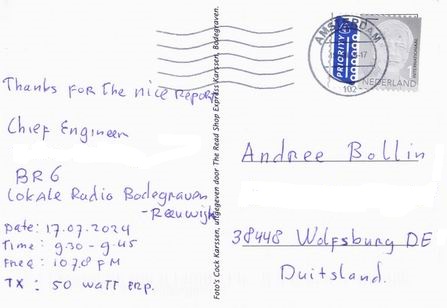 Thanks for the nice Report
Chief Engineer
BR6
Lokale Radio Bodegraven
-Reeuwijk
Date: 17.07.2024
Time: 9.30 - 9.45
Freq: 107.8 FM
TX: 50 watt erp.
Foto's Cock Karssen, uitgegeven door The Read Shop Express Karssen, Bodegraven.
AMSTERDAM
PRIORITY
NEDERLAND
INTERNATIONAAL
Andree Bollin
38448 Wolfsburg DE
Duitsland.